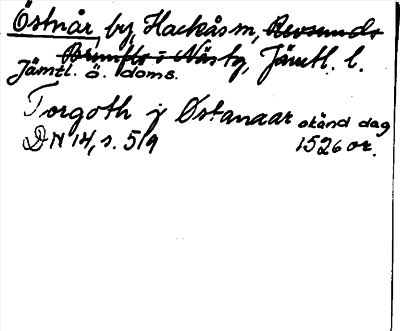 Östnår by, Hackås sn, Revsunds
Brunflo o Näsby, Jämtl. l.
Jämtl. ö. doms.
Torgoth j Østanaar okänd dag
DN 14, s. 519 1526 or.